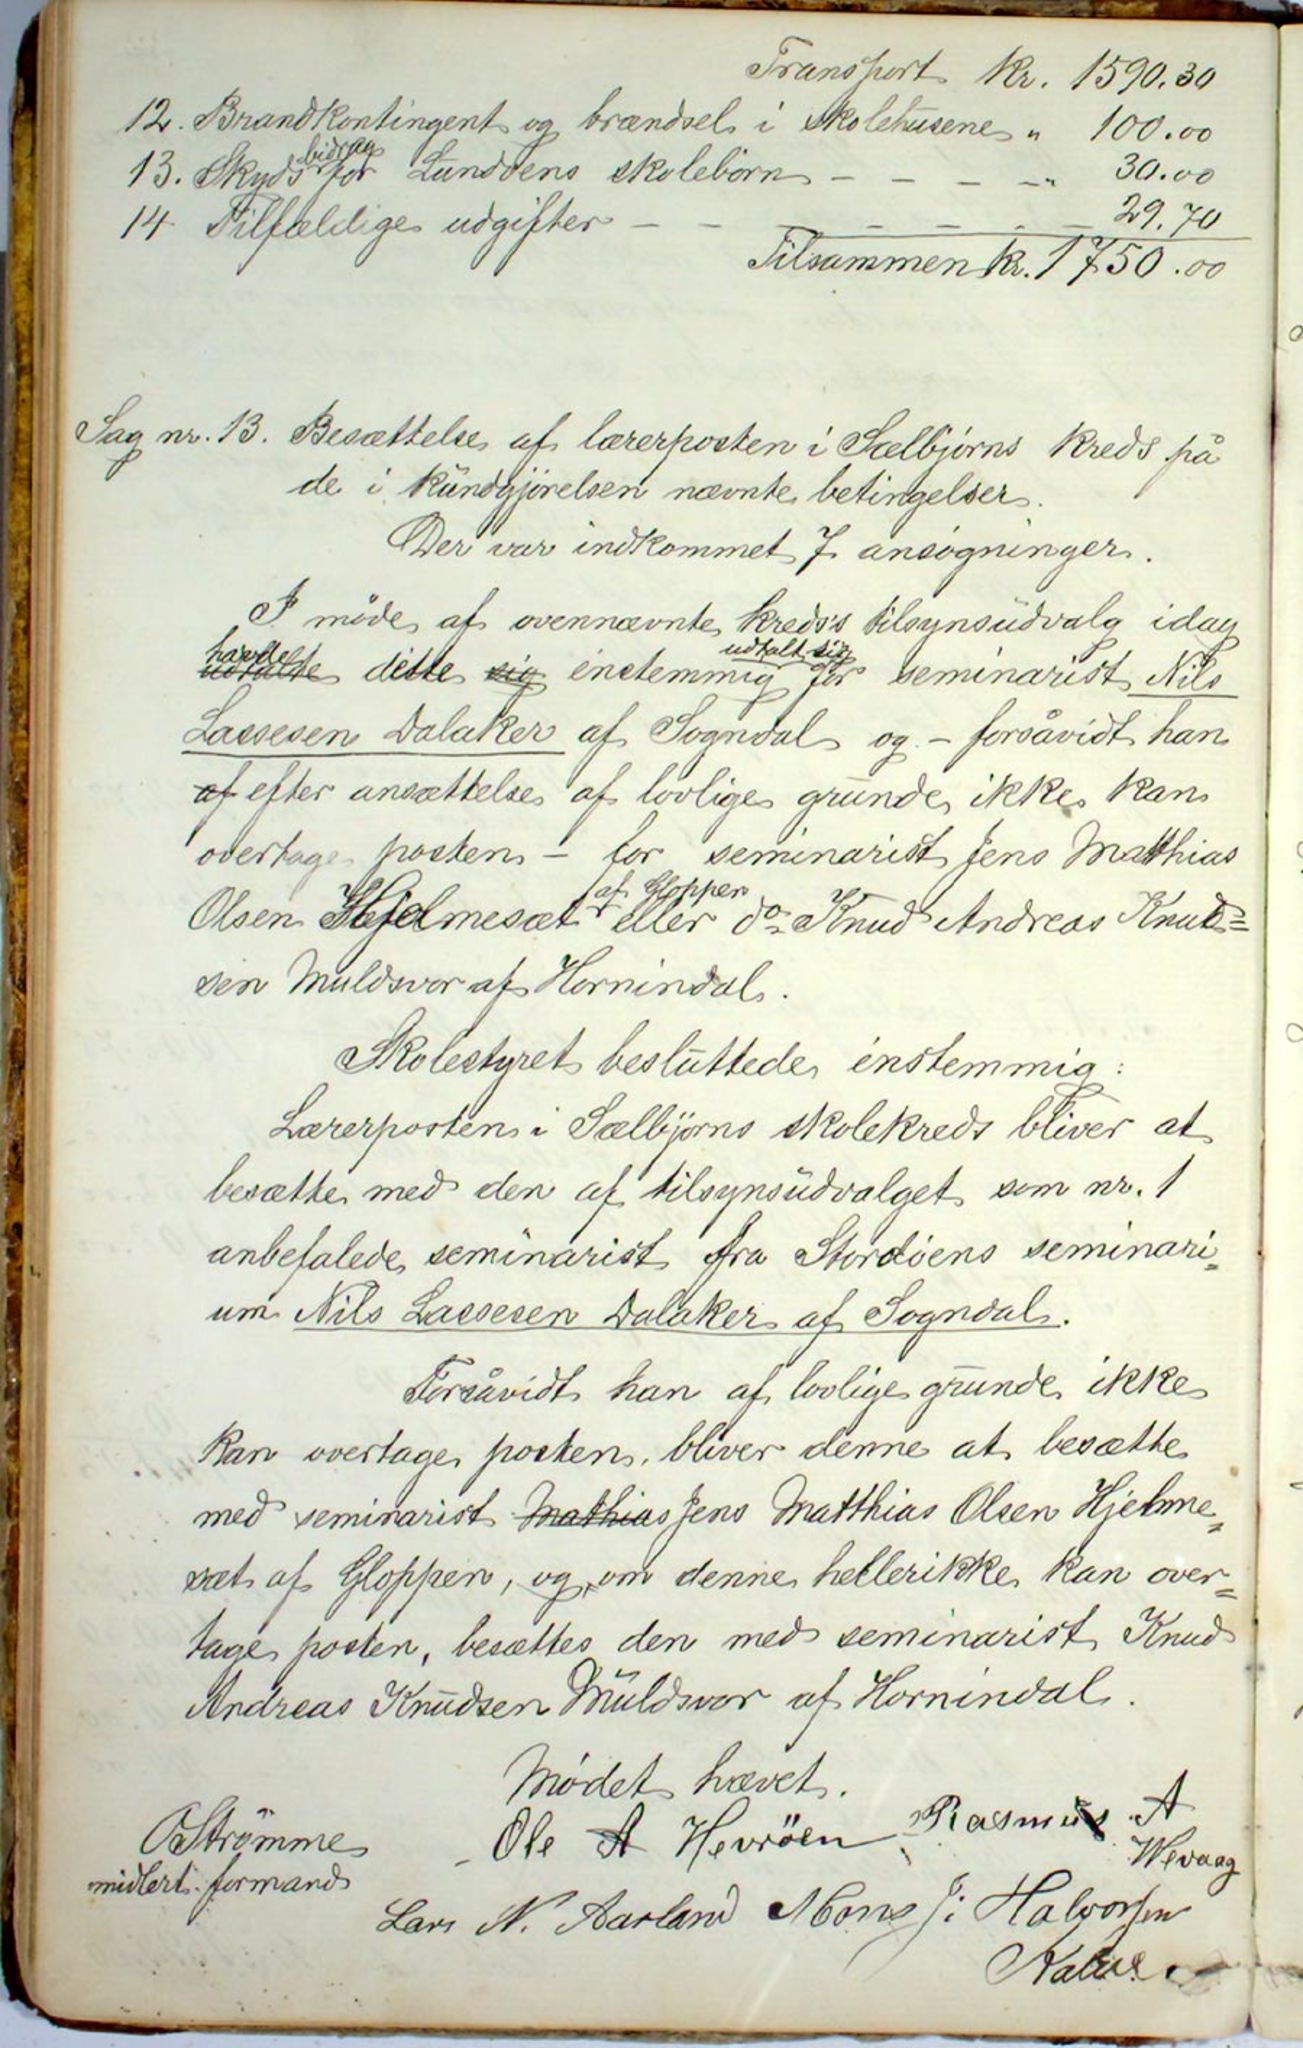 Transport Kr. 1590.30
12. Brandkontingent og brændsel i skolehusene " 100.00
13. Skydsbidrag for Lundöens skolebörn - - - - " 30.00
14 Tilfældige udgifter - - - - - - - 29.70
Tilsammen kr. 1750.00
Sag nr. 13. Besættelse af lærerposten i Sælbjörns kreds på
de i kundgjörelsen nævnte betingelser.
Der var indkommet 7 ansögninger.
I möde af ovennævnte kreds's tilsynsudvalg idag
havde udtalte dette sig énstemmig udtalt sig for seminarist Nils
Lassesen Dalaker af Sogndal og - forsåvidt han
af efter ansættelse af lovlige grunde ikke kan
overtage posten - for seminarist Jens Matthias
Olsen Hjelmesæt af Gloppen eller do Knud Andreas Knud=
sen Muldsvor af Hornindal.
Skolestyret besluttede énstemmig:
Lærerposten i Sælbjörns skolekreds bliver at
besætte med den af tilsynsudvalget som nr. 1
anbefalede seminarist fra Stordöens seminari=
um Nils Lassesen Dalaker af Sogndal.
Forsåvidt han af lovlige grunde ikke
kan overtage posten, bliver denne at besætte
med seminarist Mathias Jens Matthias Olsen Hjelme=
sæt af Gloppen, og, om denne heller ikke kan over=
tage posten, besættes den med seminarist Knud
Andreas Knudsen Muldsvor af Hornindal.
Mödet hævet.
OStrömme Ole A Hevröen Rasmus A
midlert. formand Wevaag
Lars N. Aarland Mons J: Halvorsen